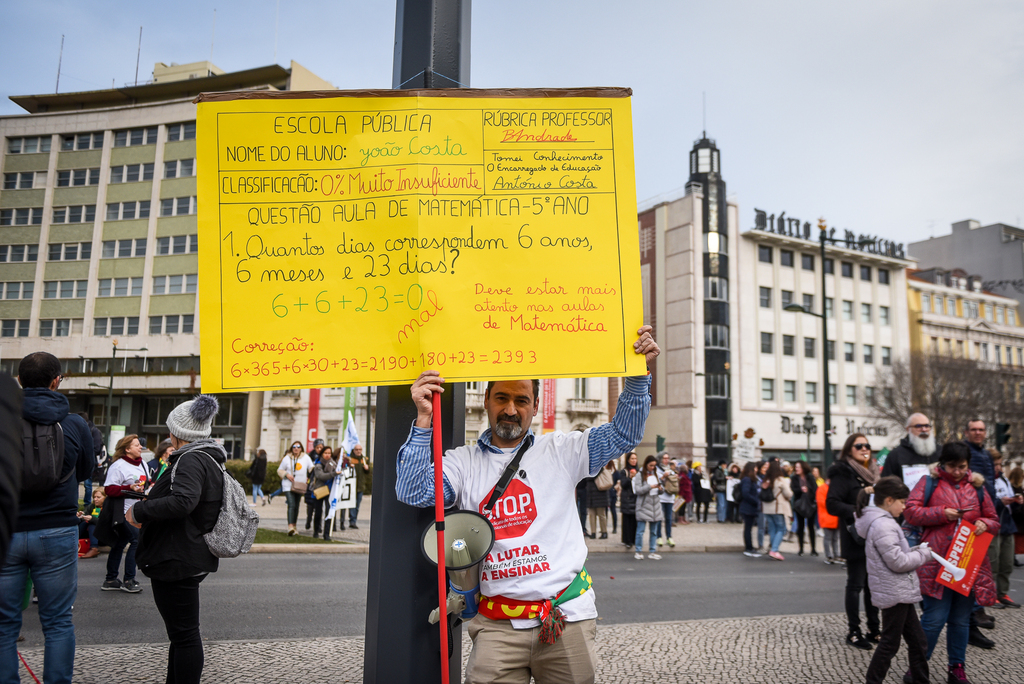 ESCOLA PÚBLICA
NOME DO ALUNO: yoão Costa
CLASSIFICAÇÃO: 0% Muito Insuficiente
RÚBRICA PROFESSOR
BAndrade
Tomei Conhecimento
O Encarregado de Educação
António Costa
QUESTÃO AULA DE MATEMÁTICA-5º ANO
1. Quantos dias correspondem 6 anos,
6 meses e 23 dias?
6+6+23=0
mal
Deve estar mais
atento nas aulas
de Matemática
Correção:
6×365+6×30+23=2190+180+23=2393
Diário de Notícias
Diário de Notícias
S.T.O.P.
A LUTAR
TAMBÉM ESTAMOS
A ENSINAR
RESPEITO